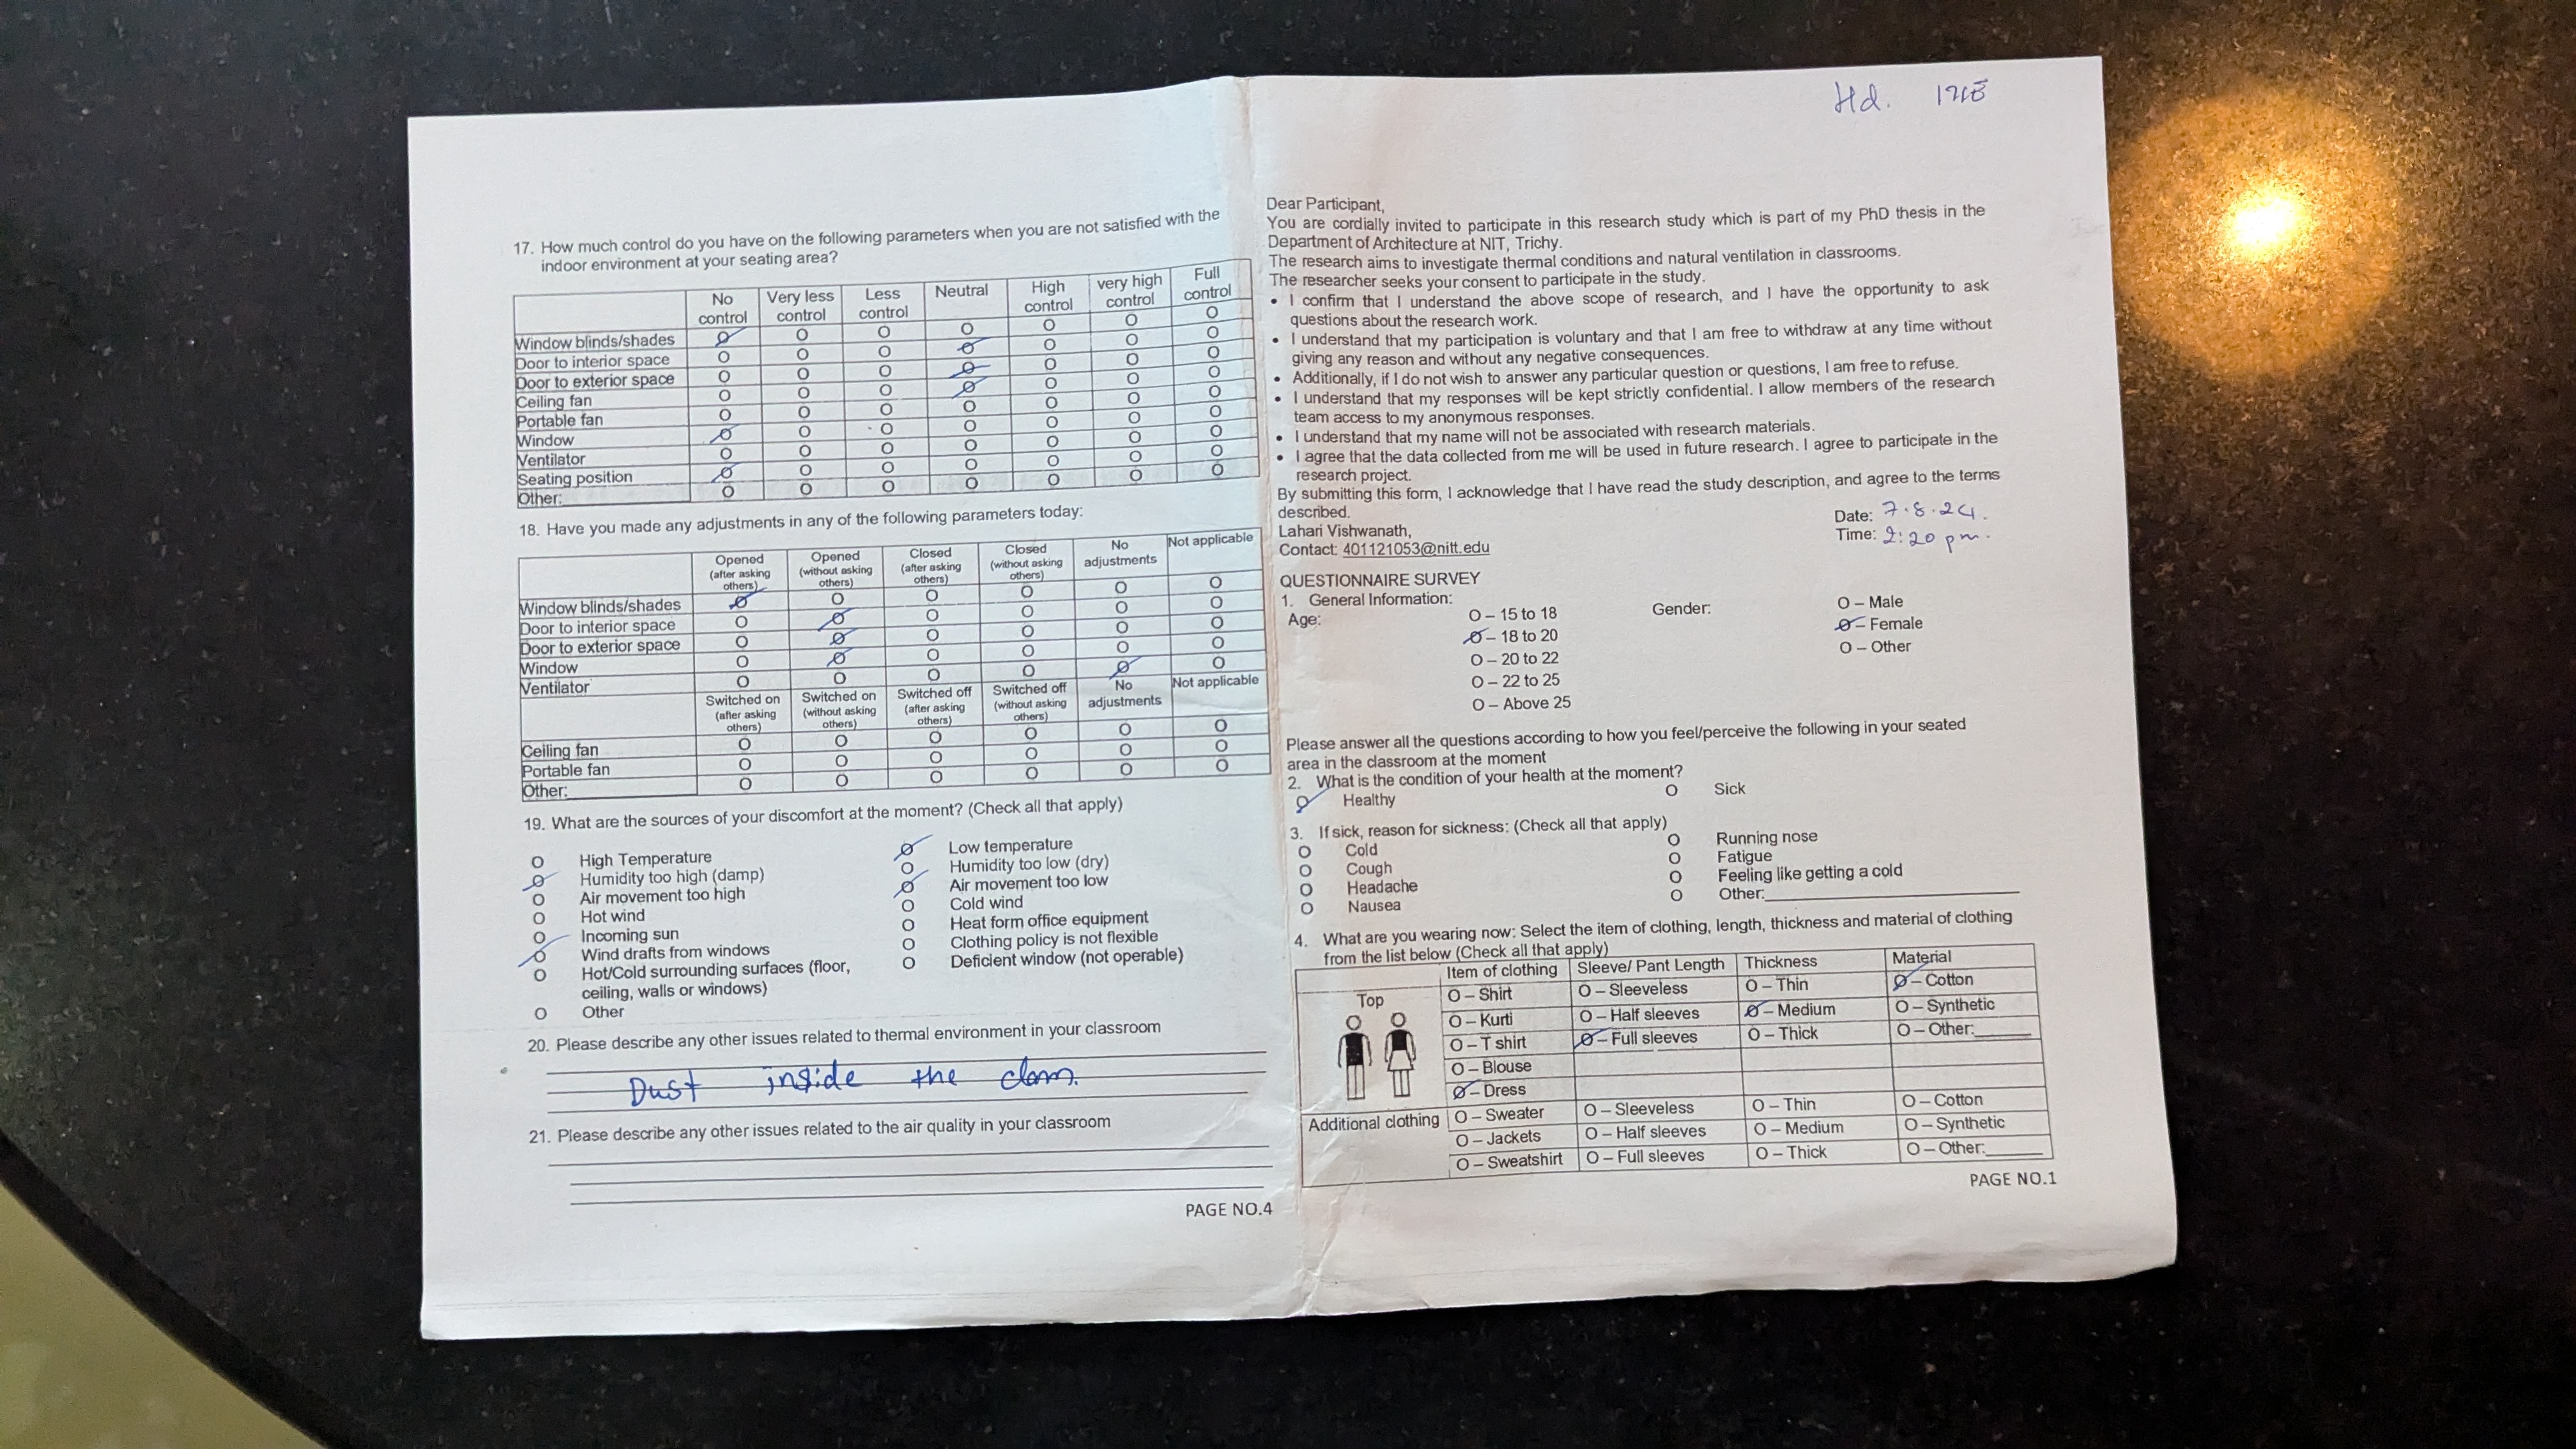 17. How much control do you have on the following parameters when you are not satisfied with the
indoor environment at your seating area?
No control Very less control Less control Neutral High control very high control Full control
Window blinds/shades O O O O O O O
Door to interior space O O O O O O O
Door to exterior space O O O O O O O
Ceiling fan O O O O O O O
Portable fan O O O O O O O
Window O O O O O O O
Ventilator O O O O O O O
Seating position O O O O O O O
Other: O O O O O O O
18. Have you made any adjustments in any of the following parameters today:
Opened (after asking others) Opened (without asking others) Closed (after asking others) Closed (without asking others) No adjustments Not applicable
Window blinds/shades O O O O O O
Door to interior space O O O O O O
Door to exterior space O O O O O O
Window O O O O O O
Ventilator O O O O O O
Switched on (after asking others) Switched on (without asking others) Switched off (after asking others) Switched off (without asking others) No adjustments Not applicable
Ceiling fan O O O O O O
Portable fan O O O O O O
Other: O O O O O O
19. What are the sources of your discomfort at the moment? (Check all that apply)
O High Temperature
O Humidity too high (damp)
O Air movement too high
O Hot wind
O Incoming sun
O Wind drafts from windows
O Hot/Cold surrounding surfaces (floor,
ceiling, walls or windows)
O Other
O Low temperature
O Humidity too low (dry)
O Air movement too low
O Cold wind
O Heat form office equipment
O Clothing policy is not flexible
O Deficient window (not operable)
20. Please describe any other issues related to thermal environment in your classroom
Dust inside the class.
21. Please describe any other issues related to the air quality in your classroom
PAGE NO.4
Hd.
Dear Participant,
You are cordially invited to participate in this research study which is part of my PhD thesis in the
Department of Architecture at NIT, Trichy.
The research aims to investigate thermal conditions and natural ventilation in classrooms.
The researcher seeks your consent to participate in the study.
• I confirm that I understand the above scope of research, and I have the opportunity to ask
questions about the research work.
• I understand that my participation is voluntary and that I am free to withdraw at any time without
giving any reason and without any negative consequences.
• Additionally, if I do not wish to answer any particular question or questions, I am free to refuse.
• I understand that my responses will be kept strictly confidential. I allow members of the research
team access to my anonymous responses.
• I understand that my name will not be associated with research materials.
• I agree that the data collected from me will be used in future research. I agree to participate in the
research project.
By submitting this form, I acknowledge that I have read the study description, and agree to the terms
described.
Lahari Vishwanath,
Contact: 401121053@nitt.edu
Date: 7.8.24.
Time: 2:20 pm.
QUESTIONNAIRE SURVEY
1. General Information:
Age:
O – 15 to 18
O – 18 to 20
O – 20 to 22
O – 22 to 25
O – Above 25
Gender:
O – Male
O – Female
O – Other
Please answer all the questions according to how you feel/perceive the following in your seated
area in the classroom at the moment
2. What is the condition of your health at the moment?
O Healthy O Sick
3. If sick, reason for sickness: (Check all that apply)
O Cold O Running nose
O Cough O Fatigue
O Headache O Feeling like getting a cold
O Nausea O Other:
4. What are you wearing now: Select the item of clothing, length, thickness and material of clothing
from the list below (Check all that apply)
Item of clothing Sleeve/ Pant Length Thickness Material
Top
O – Shirt O – Sleeveless O – Thin O – Cotton
O – Kurti O – Half sleeves O – Medium O – Synthetic
O – T shirt O – Full sleeves O – Thick O – Other:
O – Blouse
O – Dress
Additional clothing
O – Sweater O – Sleeveless O – Thin O – Cotton
O – Jackets O – Half sleeves O – Medium O – Synthetic
O – Sweatshirt O – Full sleeves O – Thick O – Other:
PAGE NO.1